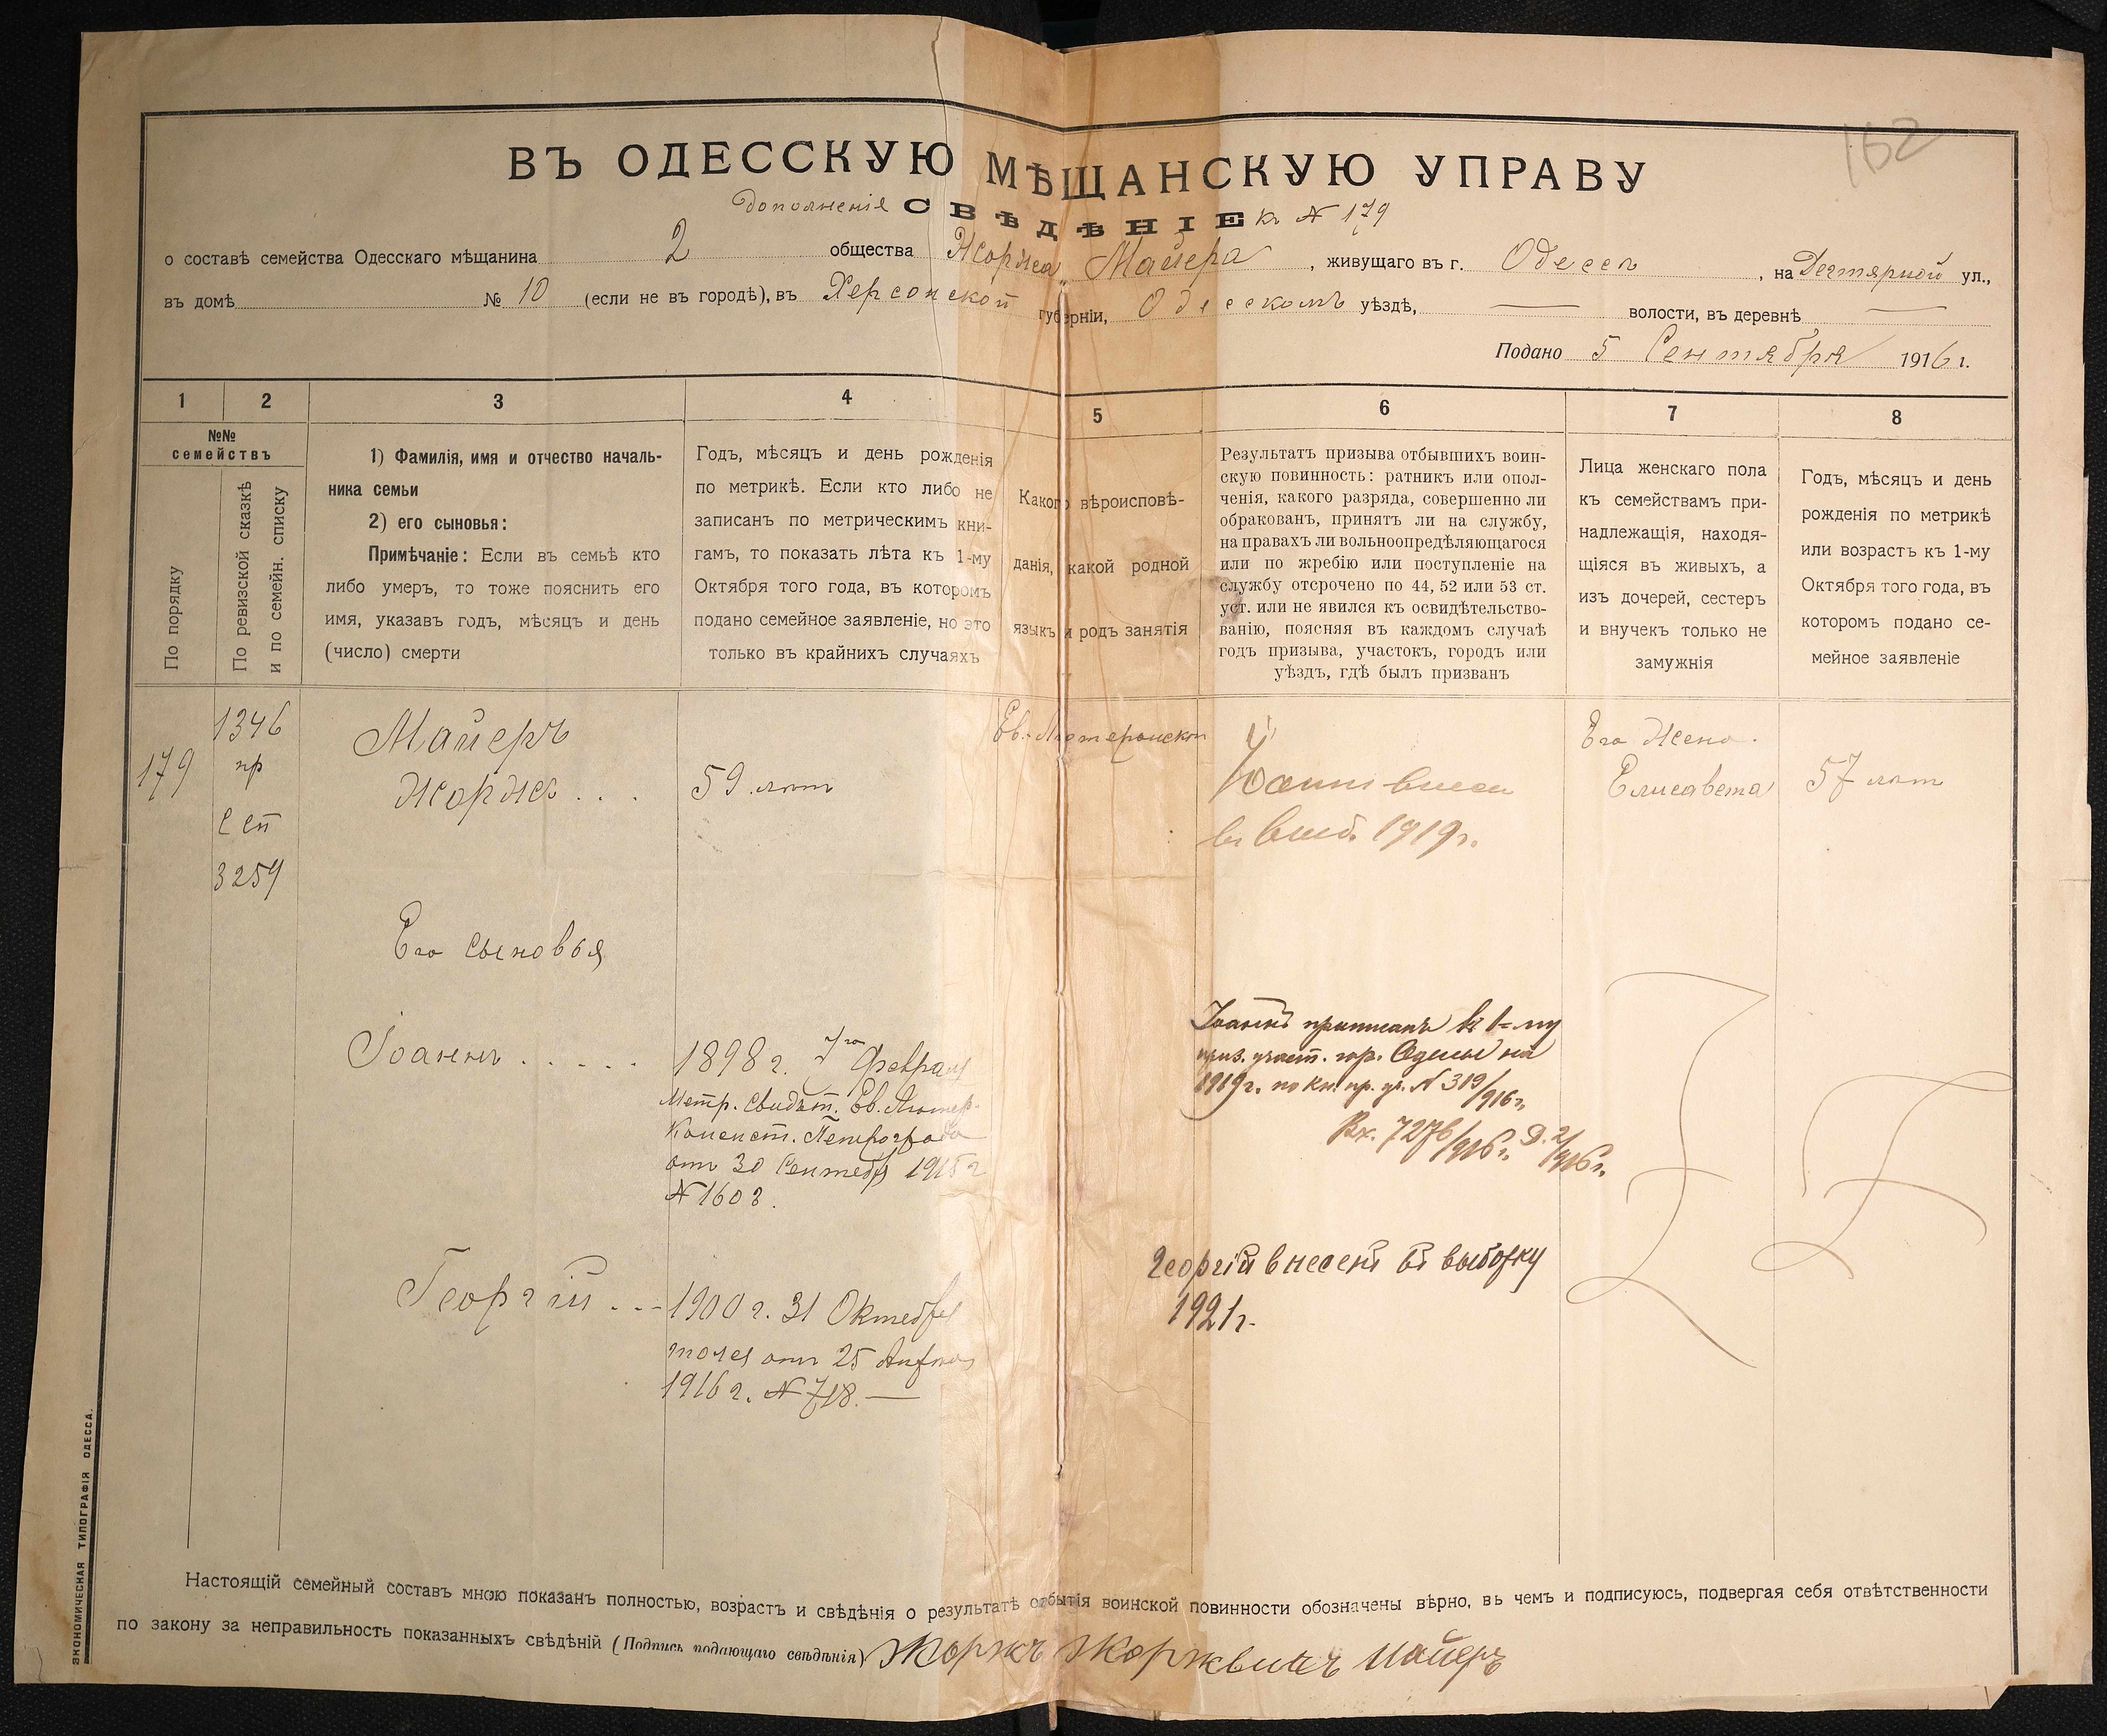 162
ВЪ ОДЕССКУЮ МѢЩАНСКУЮ УПРАВУ
Дополненія СВѢДѢНІЕ к № 179
о составѣ семейства Одесскаго мѣщанина 2 общества Жоржа Майера, живущаго въ г. Одессѣ, на Дегтярной ул.,
въ домѣ № 10 (если не въ городѣ), въ Херсонской губерніи, Одесскомъ уѣздѣ, — волости, въ деревнѣ —
Подано 5 Сентября 1916 г.
1 2 3 4 5 6 7 8
№№ семействъ
По порядку
По ревизской сказкѣ
и по семейн. списку
1) Фамилія, имя и отчество началь-
ника семьи
2) его сыновья:
Примѣчаніе: Если въ семьѣ кто
либо умеръ, то тоже пояснить его
имя, указавъ годъ, мѣсяцъ и день
(число) смерти
Годъ, мѣсяцъ и день рожденія
по метрикѣ. Если кто либо не
записанъ по метрическимъ кни-
гамъ, то показать лѣта къ 1-му
Октября того года, въ которомъ
подано семейное заявленіе, но это
только въ крайнихъ случаяхъ
Какого вѣроисповѣ-
данія, какой родной
языкъ и родъ занятія
Результатъ призыва отбывшихъ воин-
скую повинность: ратникъ или опол-
ченія, какого разряда, совершенно ли
обракованъ, принятъ ли на службу,
на правахъ ли вольноопредѣляющагося
или по жребію или поступленіе на
службу отсрочено по 44, 52 или 53 ст.
уст. или не явился къ освидѣтельство-
ванію, поясняя въ каждомъ случаѣ
годъ призыва, участокъ, городъ или
уѣздъ, гдѣ былъ призванъ
Лица женскаго пола
къ семействамъ при-
надлежащія, находя-
щіяся въ живыхъ, а
изъ дочерей, сестеръ
и внучекъ только не
замужнія
Годъ, мѣсяцъ и день
рожденія по метрикѣ
или возрастъ къ 1-му
Октября того года, въ
которомъ подано се-
мейное заявленіе
179
1346
пр
С сп
3259
Майеръ
Жоржъ . . .
59 лѣт
Ев.-Лютеранской
в 1919 г.
Его Жена.
Елисавета
57 лѣт
Его сыновья
Іоаннъ . . . . .
1898 г. 7го Февраля
Метр. свидѣт. Ев. Лютер.
Консист. Петрограда
отъ 30 Сентебр 1915 г
№ 1603.
Іоаннъ приписанъ к 1-му
приз. участ. гор. Одессы на
1919 г. по кн. пр. уч. № 319/916 г.
Вх. 7276/916 г. Д. 2/916 г.
Георгій . . -
1900 г. 31 Октебря
тоже отъ 25 Августа
1916 г. № 718. —
Георгій внесенъ въ выборку
1921 г.
Настоящій семейный составъ мною показанъ полностью, возрастъ и свѣдѣнія о результатѣ отбытія воинской повинности обозначены вѣрно, въ чемъ и подписуюсь, подвергая себя отвѣтственности
по закону за неправильность показанныхъ свѣдѣній (Подпись подающаго свѣдѣнія) Жоржъ Жоржвичъ Майеръ
ЭКОНОМИЧЕСКАЯ ТИПОГРАФІЯ ОДЕССА.